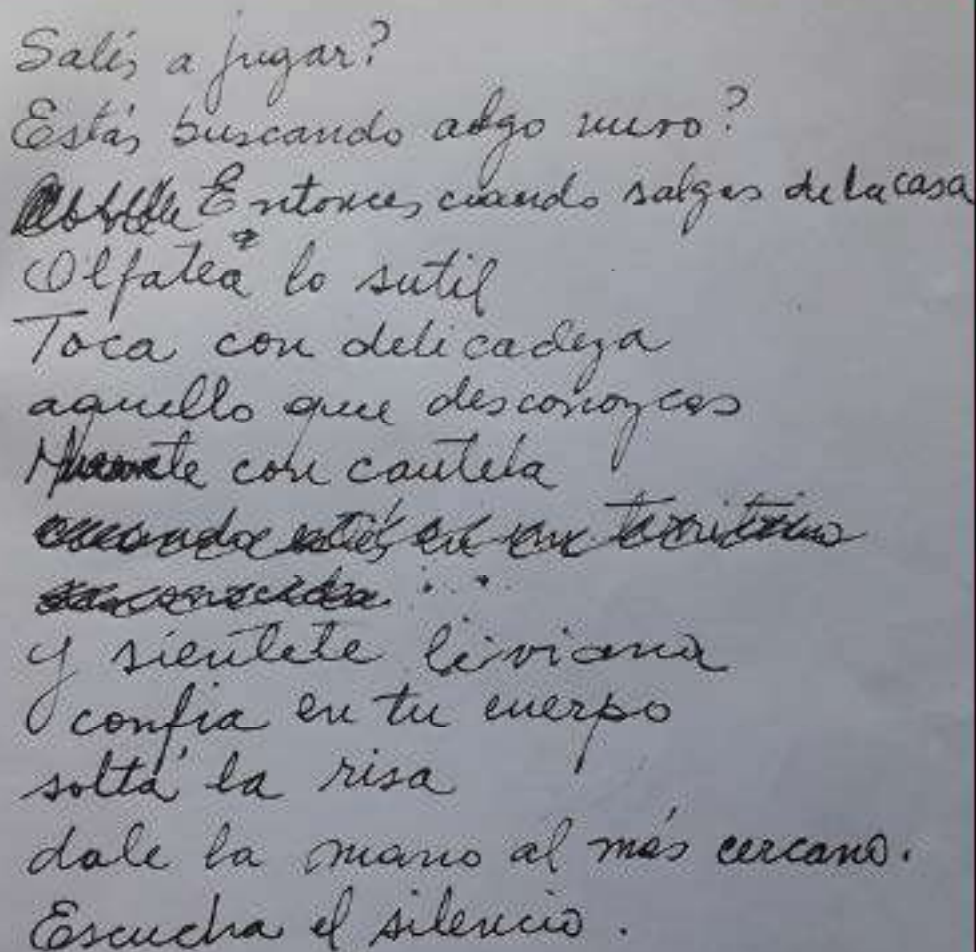 Salís a jugar?
Estás buscando algo nuevo?
Entonces cuando salgas de la casa
Olfatea lo sutil
Toca con delicadeza
aquello que desconozcas
con cautela
y sientete liviana
confia en tu cuerpo
soltá la risa
dale la mano al más cercano.
Escucha el silencio.